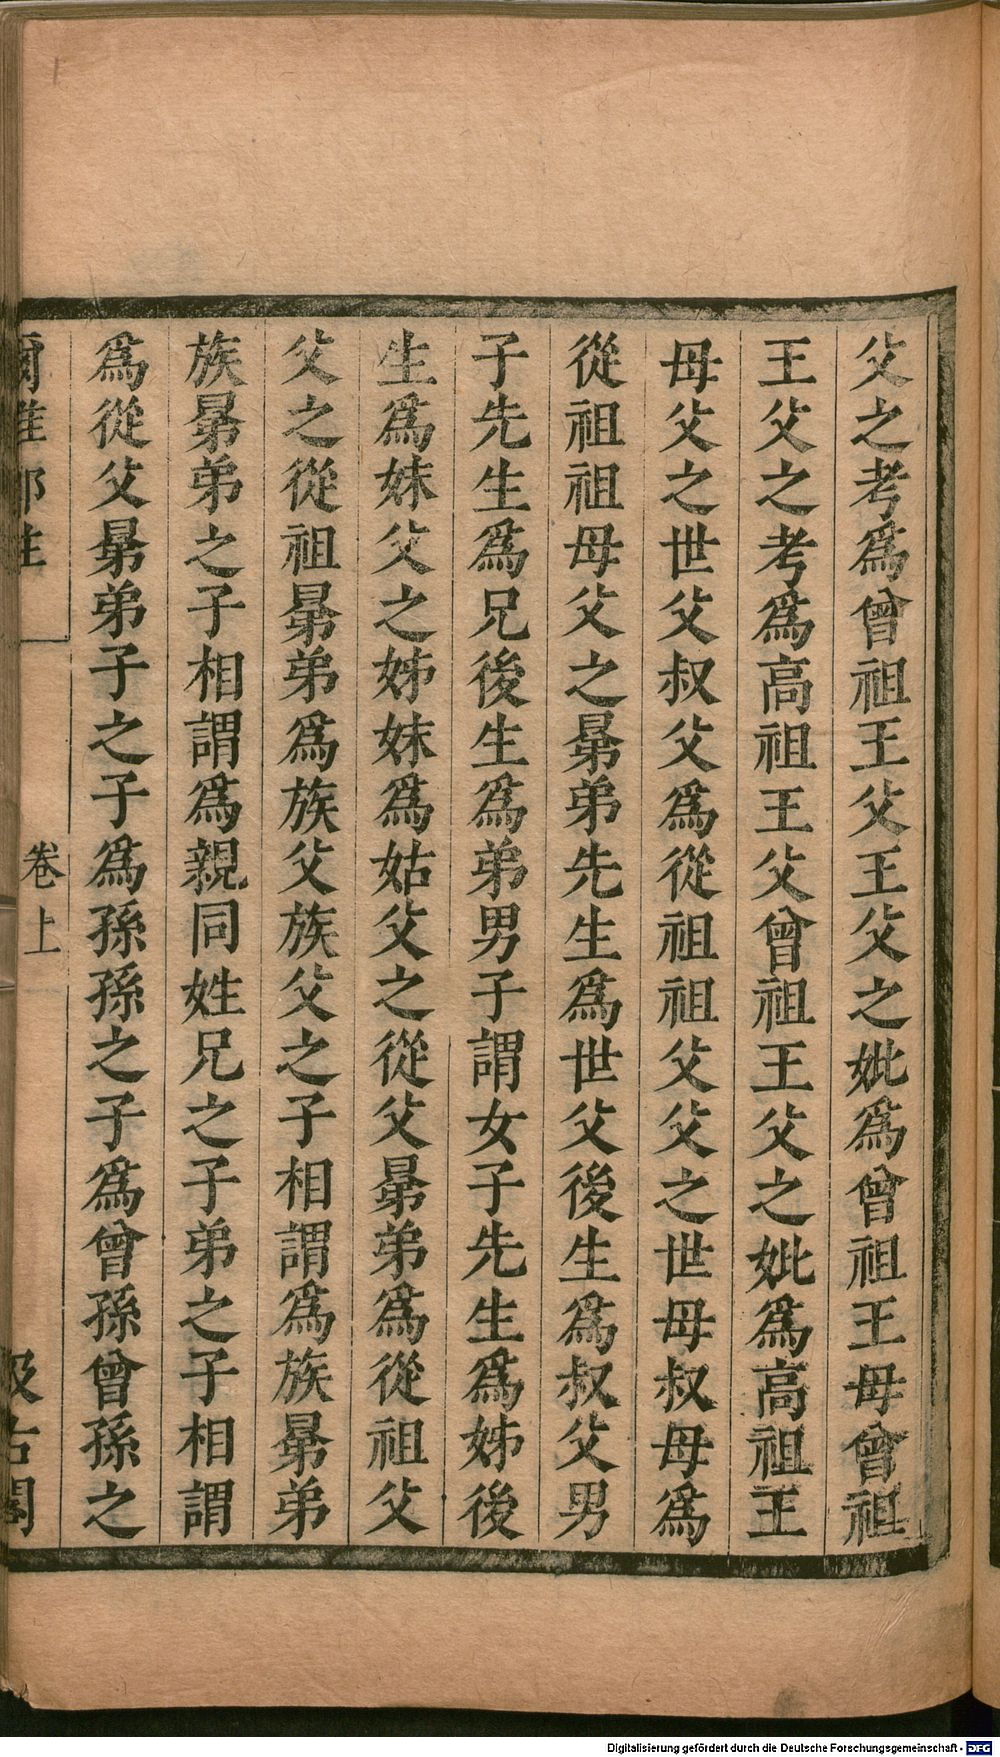 父之考爲曾祖王父王父之妣爲曾祖王母曾祖
王父之考爲高祖王父曾祖王父之妣爲高祖王
母父之世父叔父爲從祖祖父父之世母叔母爲
從祖祖母父之晜弟先生爲世父後生爲叔父男
子先生爲兄後生爲弟男子謂女子先生爲姊後
生爲妹父之姊妹爲姑父之從父晜弟爲從祖父
父之從祖晜弟爲族父族父之子相謂爲族晜弟
族晜弟之子相謂爲親同姓兄之子弟之子相謂
爲從父晜弟子之子爲孫孫之子爲曾孫曾孫之
爾雅鄭注 卷上 汲古閣
Digitalisierung gefördert durch die Deutsche Forschungsgemeinschaft - DFG